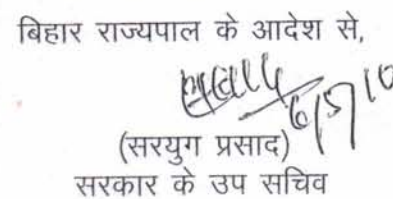 बिहार राज्यपाल के आदेश से,
6/5/10
(सरयुग प्रसाद)
सरकार के उप सचिव